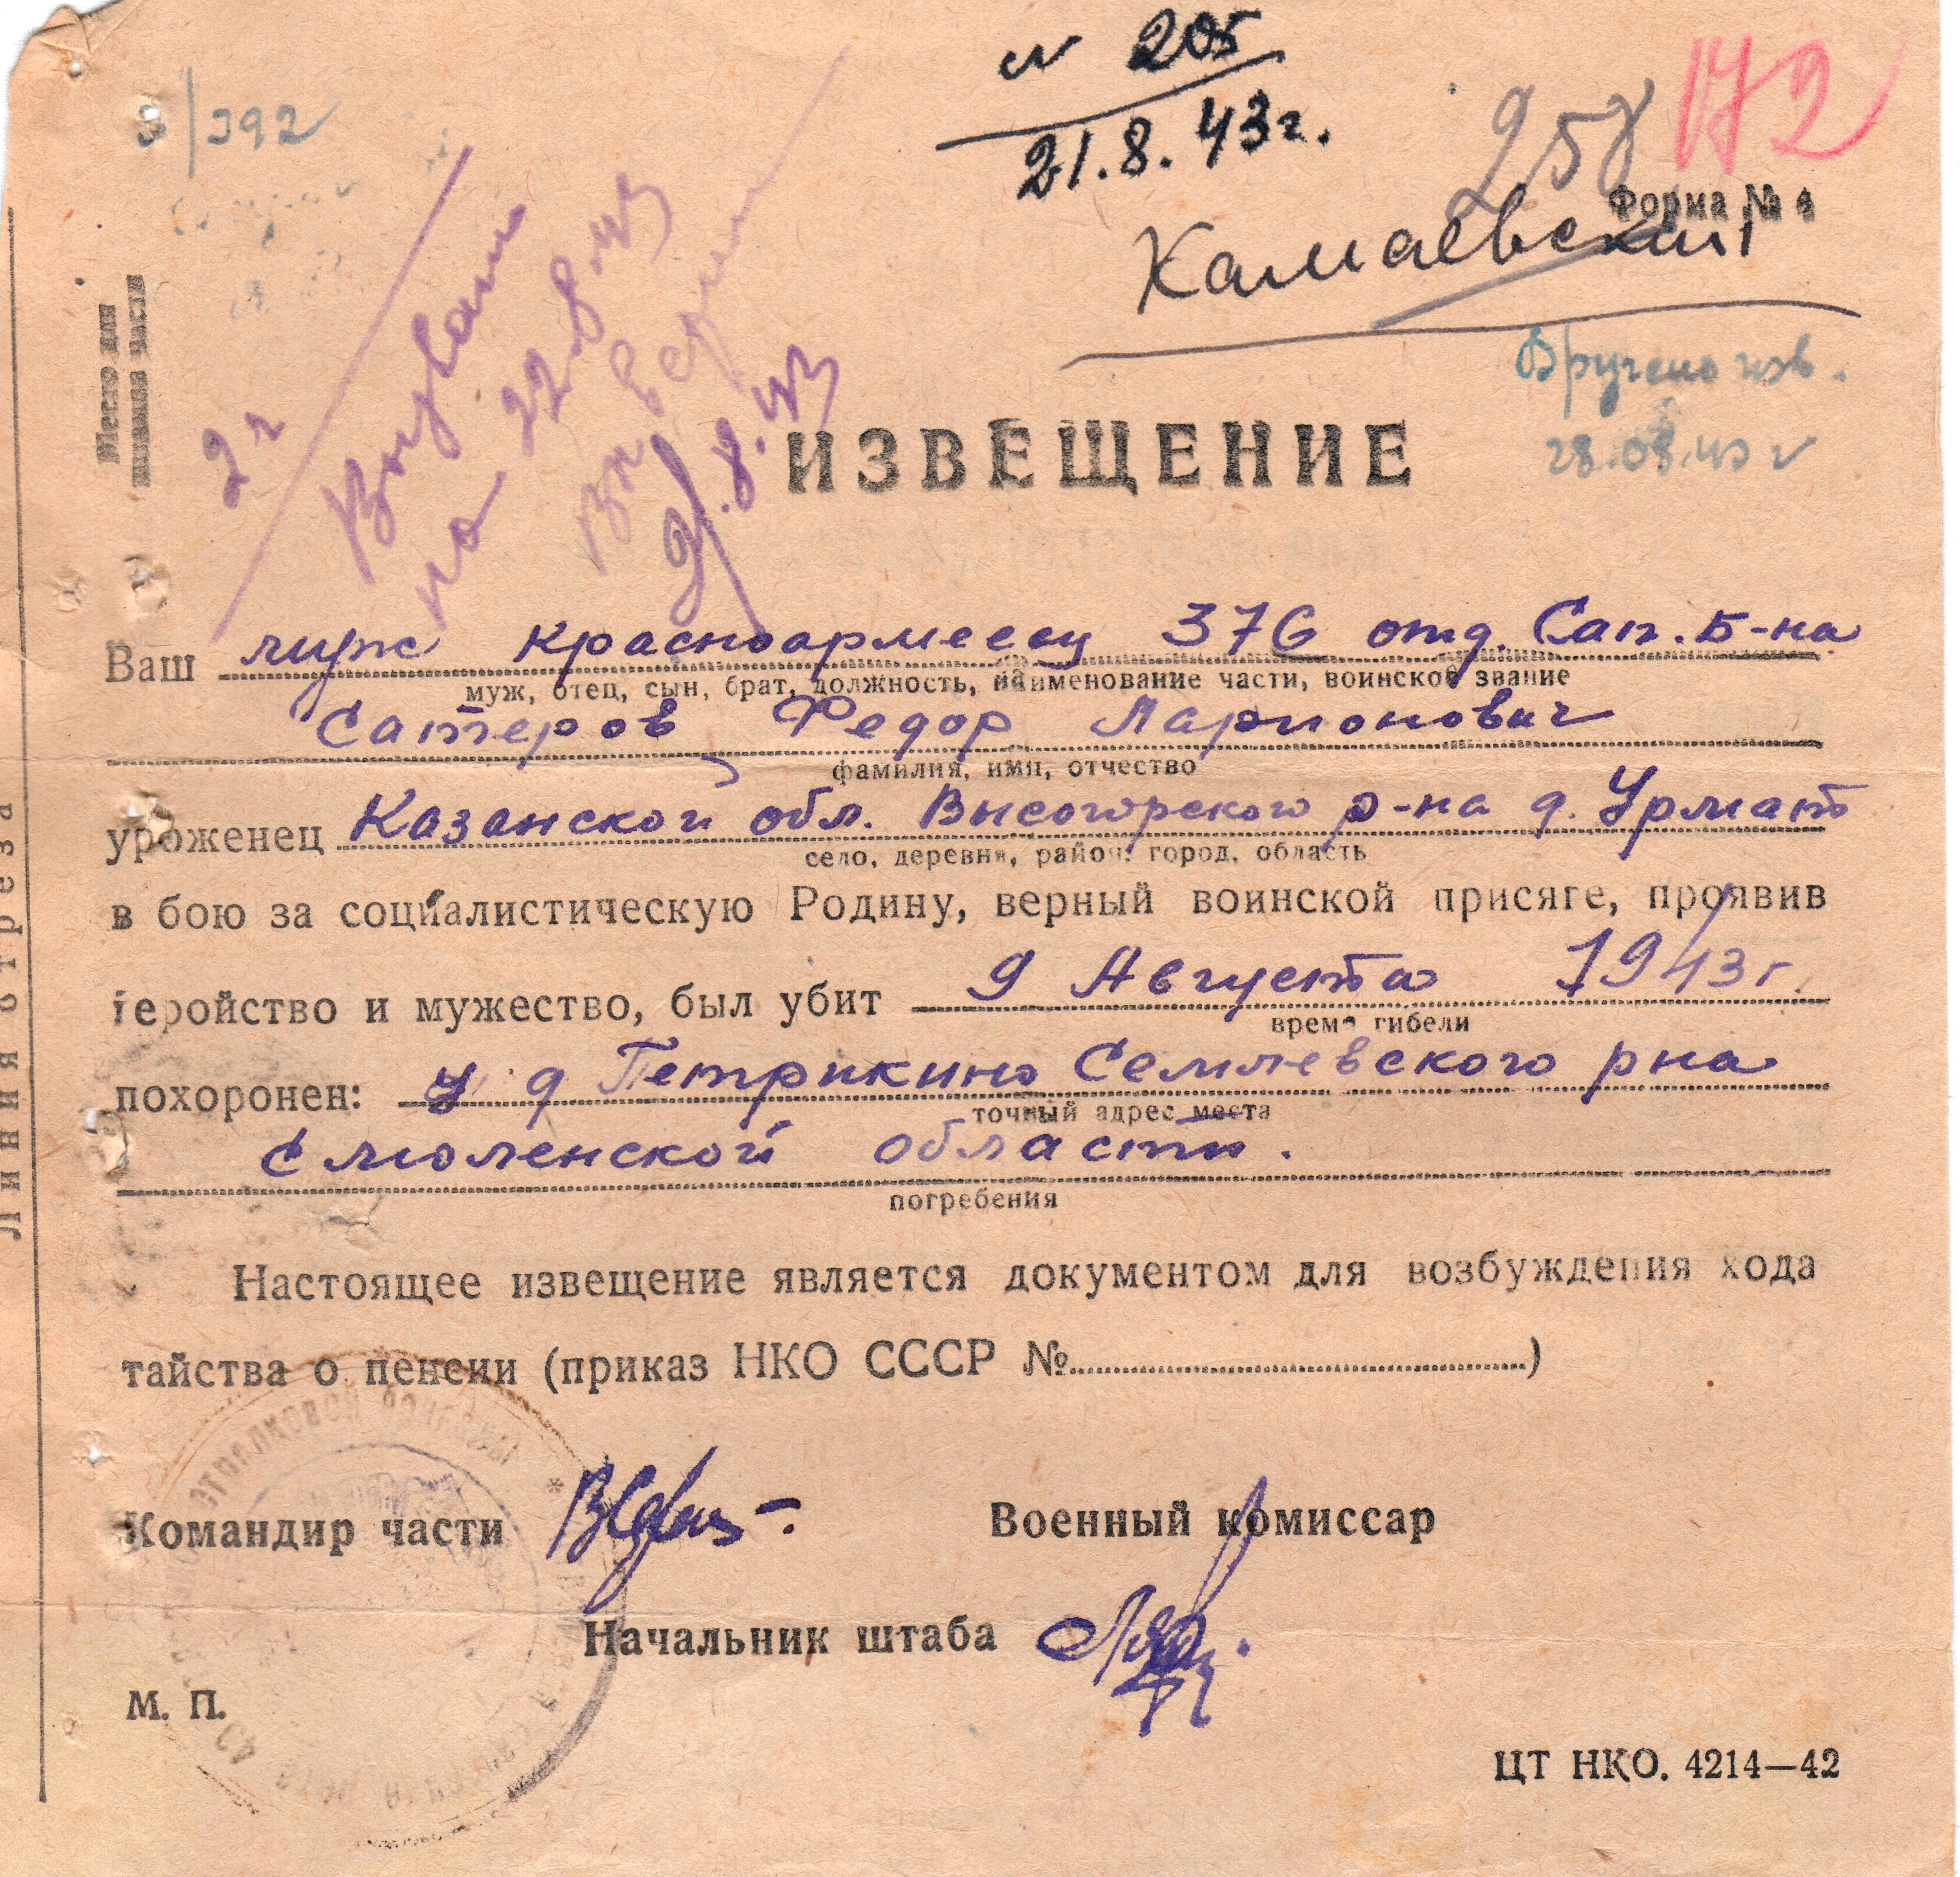 № 205
21.8.43г.
258
172
Э/392
Форма № 1
Камаевский
Вручено изв.
28.08.43 г
Место для
штампа части
2 г
Вызвать
на 22.8.43
21.8.43
ИЗВЕЩЕНИЕ
Ваш муж красноармеец 376 отд. Сап. Б-на
муж, отец, сын, брат, должность, наименование части, воинское звание
Сатеров Федор Ларионович
фамилия, имя, отчество
уроженец Казанской обл. Высогорского р-на д. Урмат
село, деревня, район, город, область
в бою за социалистическую Родину, верный воинской присяге, проявив
геройство и мужество, был убит 9 Августа 1943 г.
время гибели
похоронен: у д Петрикино Семлевского рна
точный адрес места
Смоленской области.
погребения
Настоящее извещение является документом для возбуждения хода
тайства о пенсии (приказ НКО СССР №)
Командир части
Военный комиссар
Начальник штаба
М. П.
ЦТ НКО. 4214—42
Линия отреза